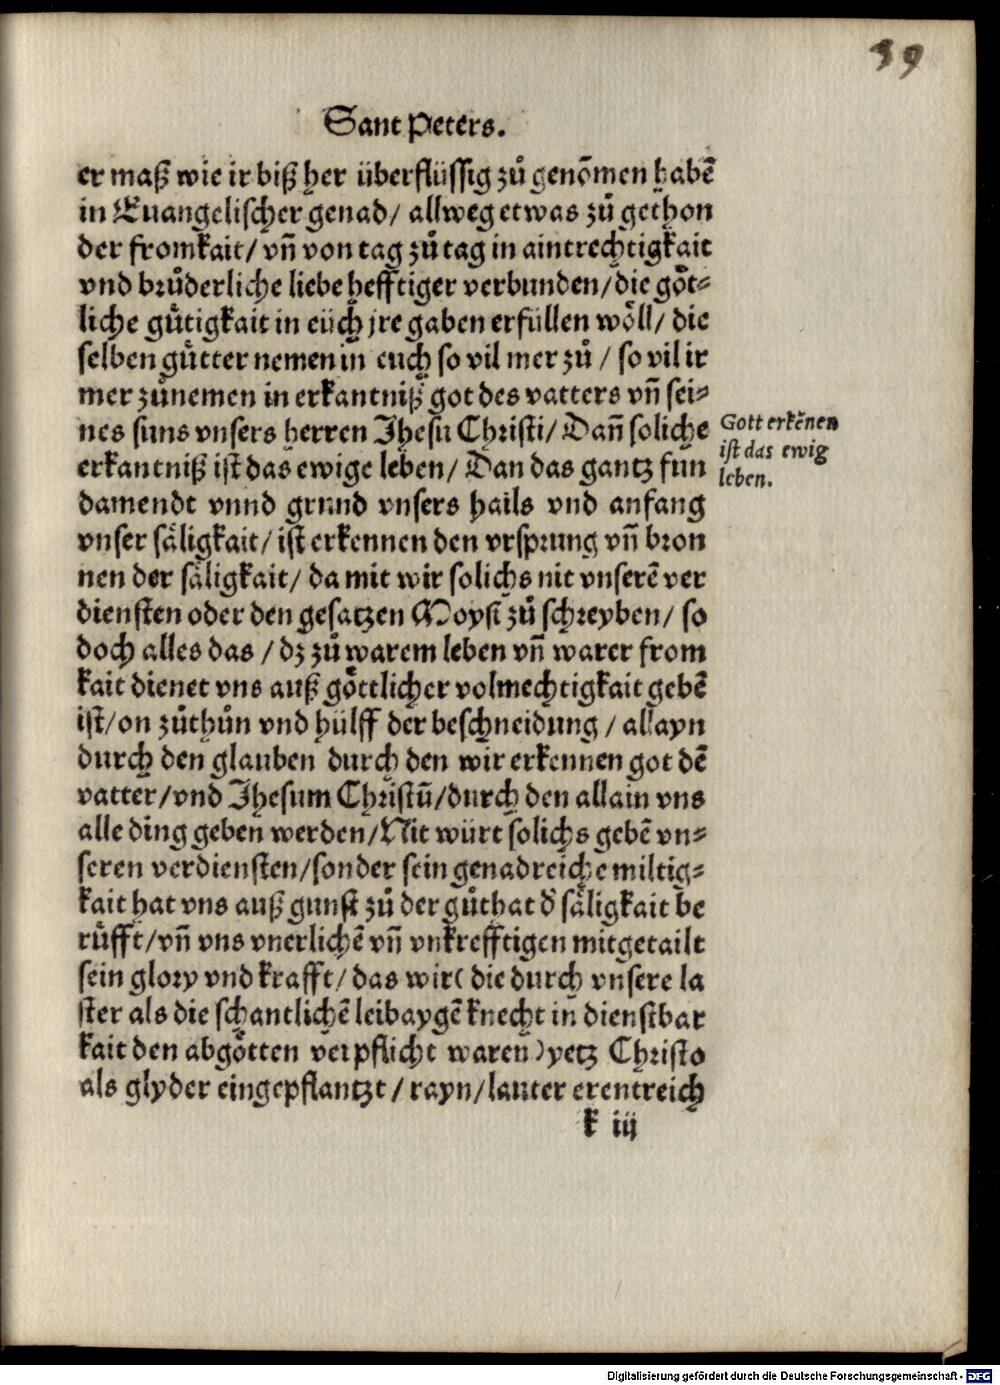 39
Sant Peters.
er maß wie ir biß her überflüssig zů genõmen habẽ
in Euangelischer genad/ allweg etwas zů gethon
der fromkait/ vñ von tag zů tag in aintrechtigkait
vnd brůderliche liebe hefftiger verbunden/die göt⸗
liche gůtigkait in eüch jre gaben erfüllen wöll/ die
selben gütter nemen in euch so vil mer zů / so vil ir
mer zůnemen in erkantniß got des vatters vñ sei⸗
nes suns vnsers herren Jhesu Christi/ Dañ soliche
Gott erkẽnen
ist das ewig
leben.
erkantniß ist das ewige leben/ Dan das gantz fun
damendt vnnd grund vnsers hails vnd anfang
vnser säligkait/ ist erkennen den vrsprung vñ bron
nen der säligkait/ da mit wir solichs nit vnserẽ ver
diensten oder den gesatzen Moysi zů schreyben/ so
doch alles das / dz zů warem leben vñ warer from
kait dienet vns auß göttlicher volmechtigkait gebẽ
ist/on zůthůn vnd hülff der beschneidung / allayn
durch den glauben durch den wir erkennen got dẽ
vatter/vnd Jhesum Christũ/durch den allain vns
alle ding geben werden/Nit würt solichs gebẽ vn⸗
seren verdiensten/sonder sein genadreiche miltig⸗
kait hat vns auß gunst zů der gůthat d̕ säligkait be
rüfft/vñ vns vnerlichẽ vñ vnkrefftigen mitgetailt
sein glory vnd krafft/ das wir( die durch vnsere la
ster als die schantlichẽ leibaygẽ knecht in dienstbar
kait den abgötten verpflicht waren)yetz Christo
als glyder eingepflantzt / rayn/lauter erentreich
k iij
Digitalisierung gefördert durch die Deutsche Forschungsgemeinschaft - DFG